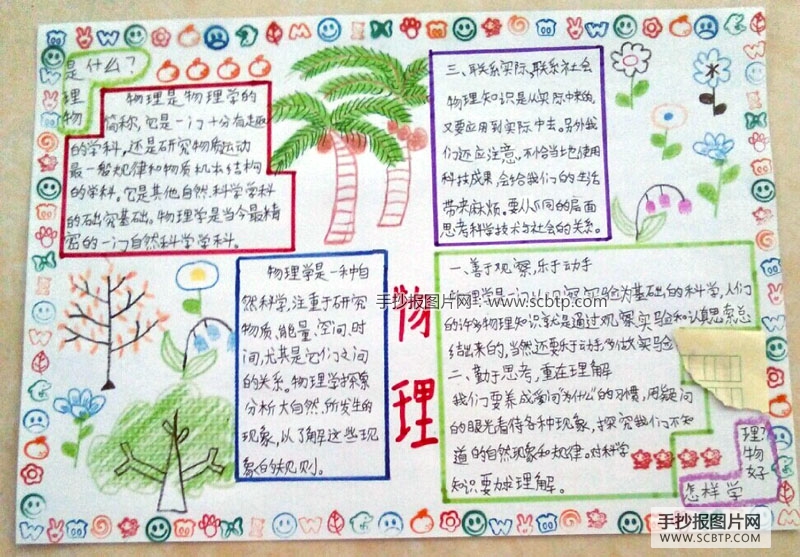 是什么？
理
物
物理是物理学的
简称，它是一门十分有趣
的学科，还是研究物质运动
最一般规律和物质机本结构
的学科。它是其他自然科学学科
的础究基础。物理学是当今最精
密的一门自然科学学科。
三、联系实际，联系社会
物理知识是从实际中来的，
又要应用到实际中去。另外我
们还应注意，不恰当地使用
科技成果，会给我们的生活
带来麻烦。要从不同的层面
思考科学技术与社会的关系。
物理学是一种自
然科学，注重于研究
物质、能量、空间、时
间，尤其是它们之间
的关系。物理学探索
分析大自然所发生的
现象，以了解这些现
象的规则。
物
理
手抄报图片网：www.scbtp.com
一、善于观察，乐于动手
物理学是一门以观察实验为基础的科学，人们
的许多物理知识就是通过观察实验和认真思索总
结出来的，当然还要乐于动手，多做实验
二、勤于思考，重在理解
我们要养成常问“为什么”的习惯，用疑问
的眼光看待各种现象，探究我们不知
道的自然现象和规律。对科学
知识要求理解。
理？
物
好
怎样学
手抄报图片网
WWW.SCBTP.COM